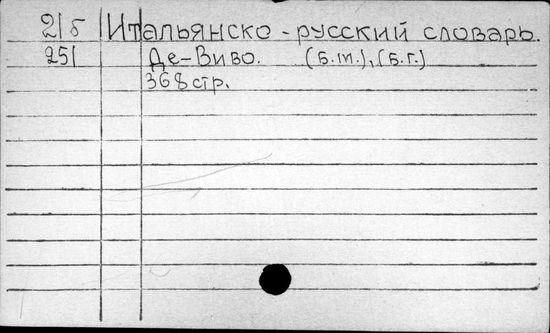 21б Итальянско-русский словарь.
251 Де-Виво. (Б.т.), (Б.г.)
368 стр.